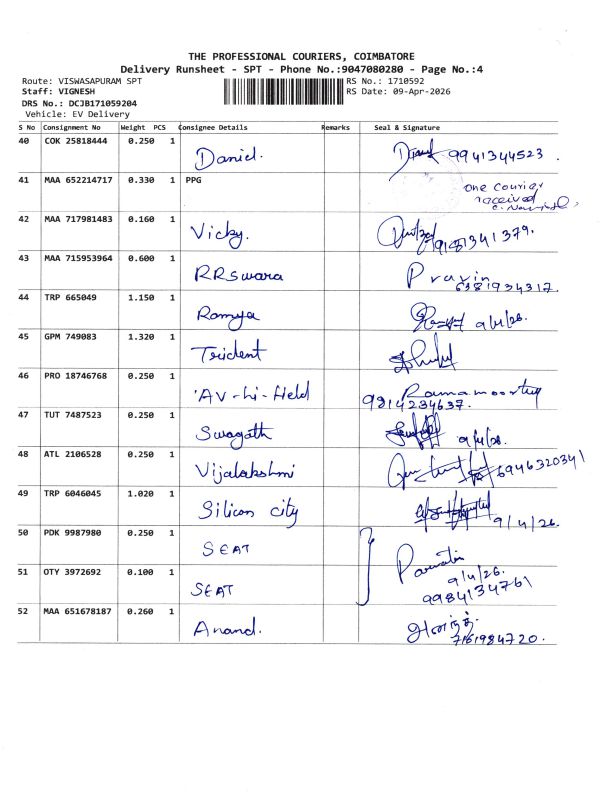 THE PROFESSIONAL COURIERS, COIMBATORE
Delivery Runsheet - SPT - Phone No.:9047080280 - Page No.:4
Route: VISWASAPURAM SPT
Staff: VIGNESH
DRS No.: DCJB171059204
Vehicle: EV Delivery
RS No.: 1710592
RS Date: 09-Apr-2026
S No Consignment No Weight PCS Consignee Details Remarks Seal & Signature
40 COK 25818444 0.250 1 Daniel. 9941344523
41 MAA 652214717 0.330 1 PPG one courier
received
42 MAA 717981483 0.160 1 Vicky. 9181341379.
43 MAA 715953964 0.600 1 RRSwara Pravin
6381934317.
44 TRP 665049 1.150 1 Ramya 9/4/26.
45 GPM 749083 1.320 1 Trident
46 PRO 18746768 0.250 1 AV-hi-Held Ramamoorthy
9814234637.
47 TUT 7487523 0.250 1 Swagath 9/4/26.
48 ATL 2106528 0.250 1 Vijalakshmi 6946320341
49 TRP 6046045 1.020 1 Silicon city 9/4/26.
50 PDK 9987980 0.250 1 SEAT
51 OTY 3972692 0.100 1 SEAT 9/4/26.
9984134761
52 MAA 651678187 0.260 1 Anand. 7161984720.